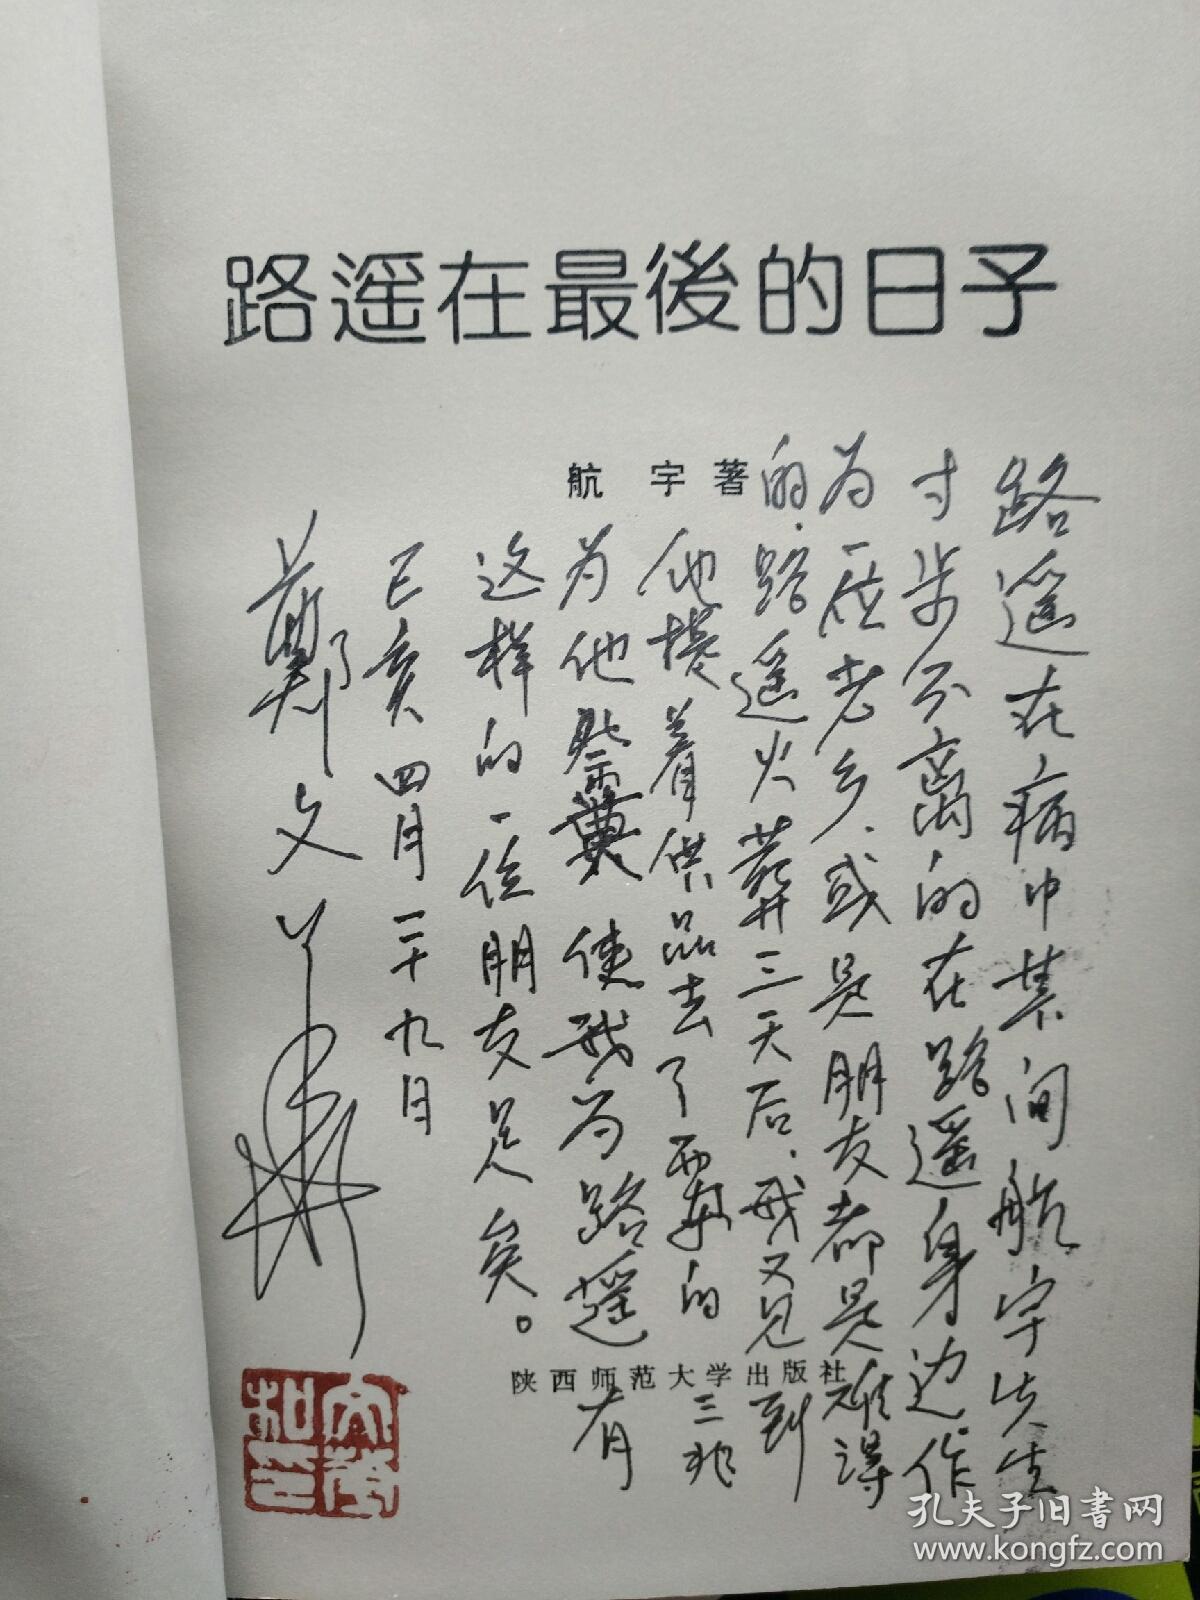 路遥在最後的日子
航宇著
路遥在病中其间航宇先生
寸步不离的在路遥身边。作
为一位老乡、或是朋友都是难得
的。路遥火葬三天后、我又见到
他提着供品去了覃的三兆
为他祭奠使我为路遥有
这样的一位朋友足矣。
己亥四月二十九日
郑文华
陕西师范大学出版社
孔夫子旧书网
www.kongfz.com